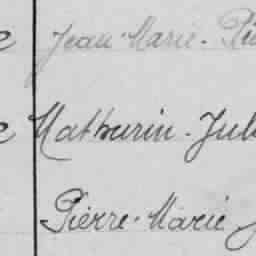 Jean-Marie-
Mathurin-
Pierre-Marie